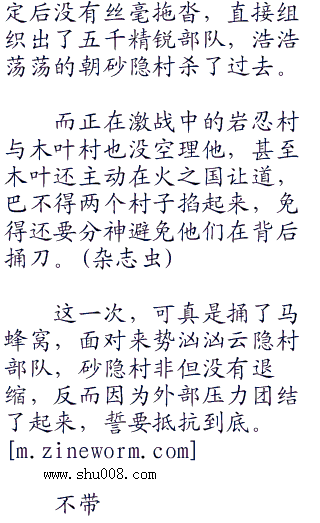 定后没有丝毫拖沓，直接组
织出了五千精锐部队，浩浩
荡荡的朝砂隐村杀了过去。
而正在激战中的岩忍村
与木叶村也没空理他，甚至
木叶还主动在火之国让道，
巴不得两个村子掐起来，免
得还要分神避免他们在背后
捅刀。(杂志虫)
这一次，可真是捅了马
蜂窝，面对来势汹汹云隐村
部队，砂隐村非但没有退
缩，反而因为外部压力团结
了起来，誓要抵抗到底。
[m.zineworm.com]
www.shu008.com
不带